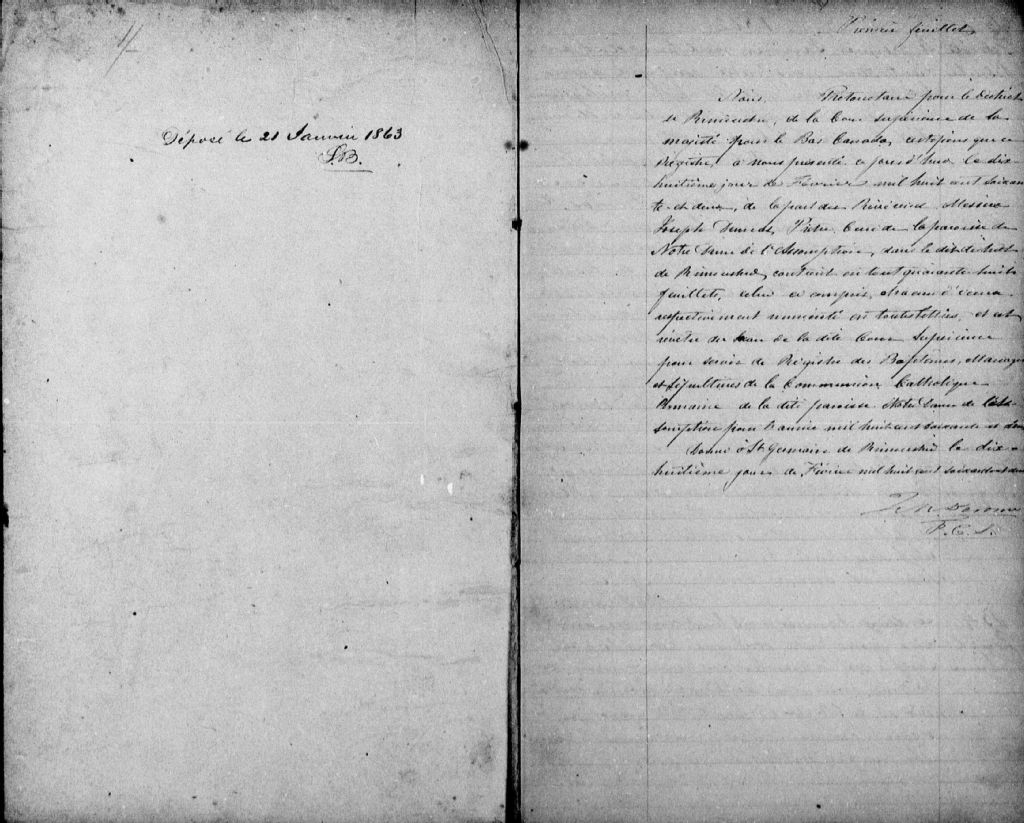 Déposé le 21 Janvier 1863
S.B.
Premier feuillet
Nous, Protonotaire pour le district
de Rimouski, de la Cour Supérieure de Sa
majesté pour le Bas Canada, certifions que ce
Régistre, à nous présenté ce jourd'hui le dix
huitième jour de Février mil huit cent soixan
te-et-deux, de la part du Révérend Messire
Joseph Prêtre, Curé de la paroisse de
Notre Dame de l'Assomption, dans le dit district
de Rimouski, contient en tout quarante huit
feuillets, celui ci compris, chacun d'iceux
respectivement numéroté en toutes lettres, et est
revêtu du sceau de la dite Cour Supérieure
pour servir de Régistre des Baptêmes, Mariages
et Sépultures de la Communion Catholique
Romaine de la dite paroisse Notre Dame de l'As-
somption pour l'année mil huit cent soixante et deux
Donné à St Germain de Rimouski le dix
huitième jour de Février mil huit cent soixante et deux
P. C. S.